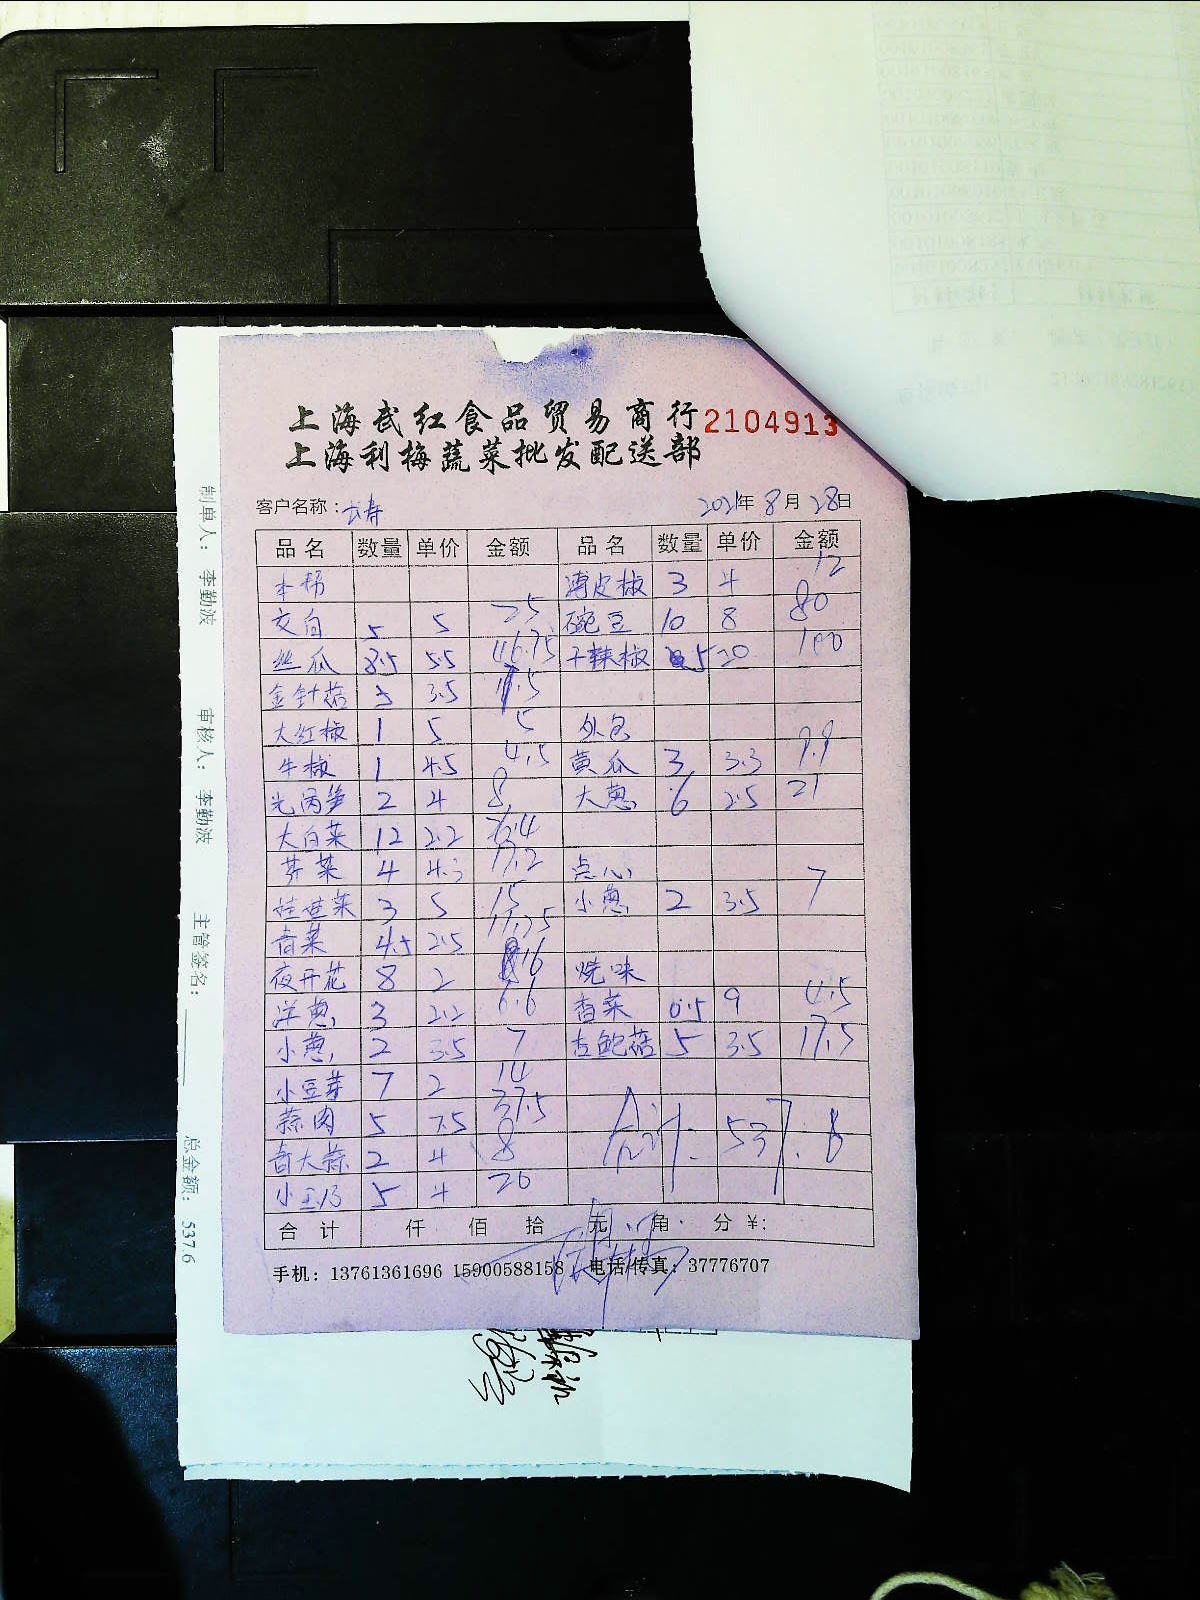 上海武红食品贸易商行 2104913
上海利梅蔬菜批发配送部
客户名称：长寿 2021年8月28日
品名 数量 单价 金额 品名 数量 单价 金额
本帮 薄皮椒 3 4 12
交白 5 5 25 碗豆 10 8 80
丝瓜 8.5 5.5 46.75 干辣椒 5 20 100
金针菇 5 3.5 17.5
大红椒 1 5 5 外包
牛椒 1 4.5 4.5 黄瓜 3 3.3 9.9
光莴笋 2 4 8 大葱 6 3.5 21
大白菜 12 2.2 26.4
芹菜 4 4.3 17.2 点心
娃娃菜 3 5 15 小葱 2 3.5 7
青菜 4.5 2.5 11.25
夜开花 8 2 16 烧味
洋葱 3 2.2 6.6 香菜 0.5 9 4.5
小葱 2 3.5 7 杏鲍菇 5 3.5 17.5
小豆芽 7 2 14
蒜肉 5 7.5 37.5
青大蒜 2 4 8 合计: 537.6
5 4 20
合计 仟 佰 拾 元 角 分 ¥:
手机：13761361696 15900588158 电话/传真：37776707
制单人： 李勤波 审核人： 李勤波 主管签名： 总金额： 537.6